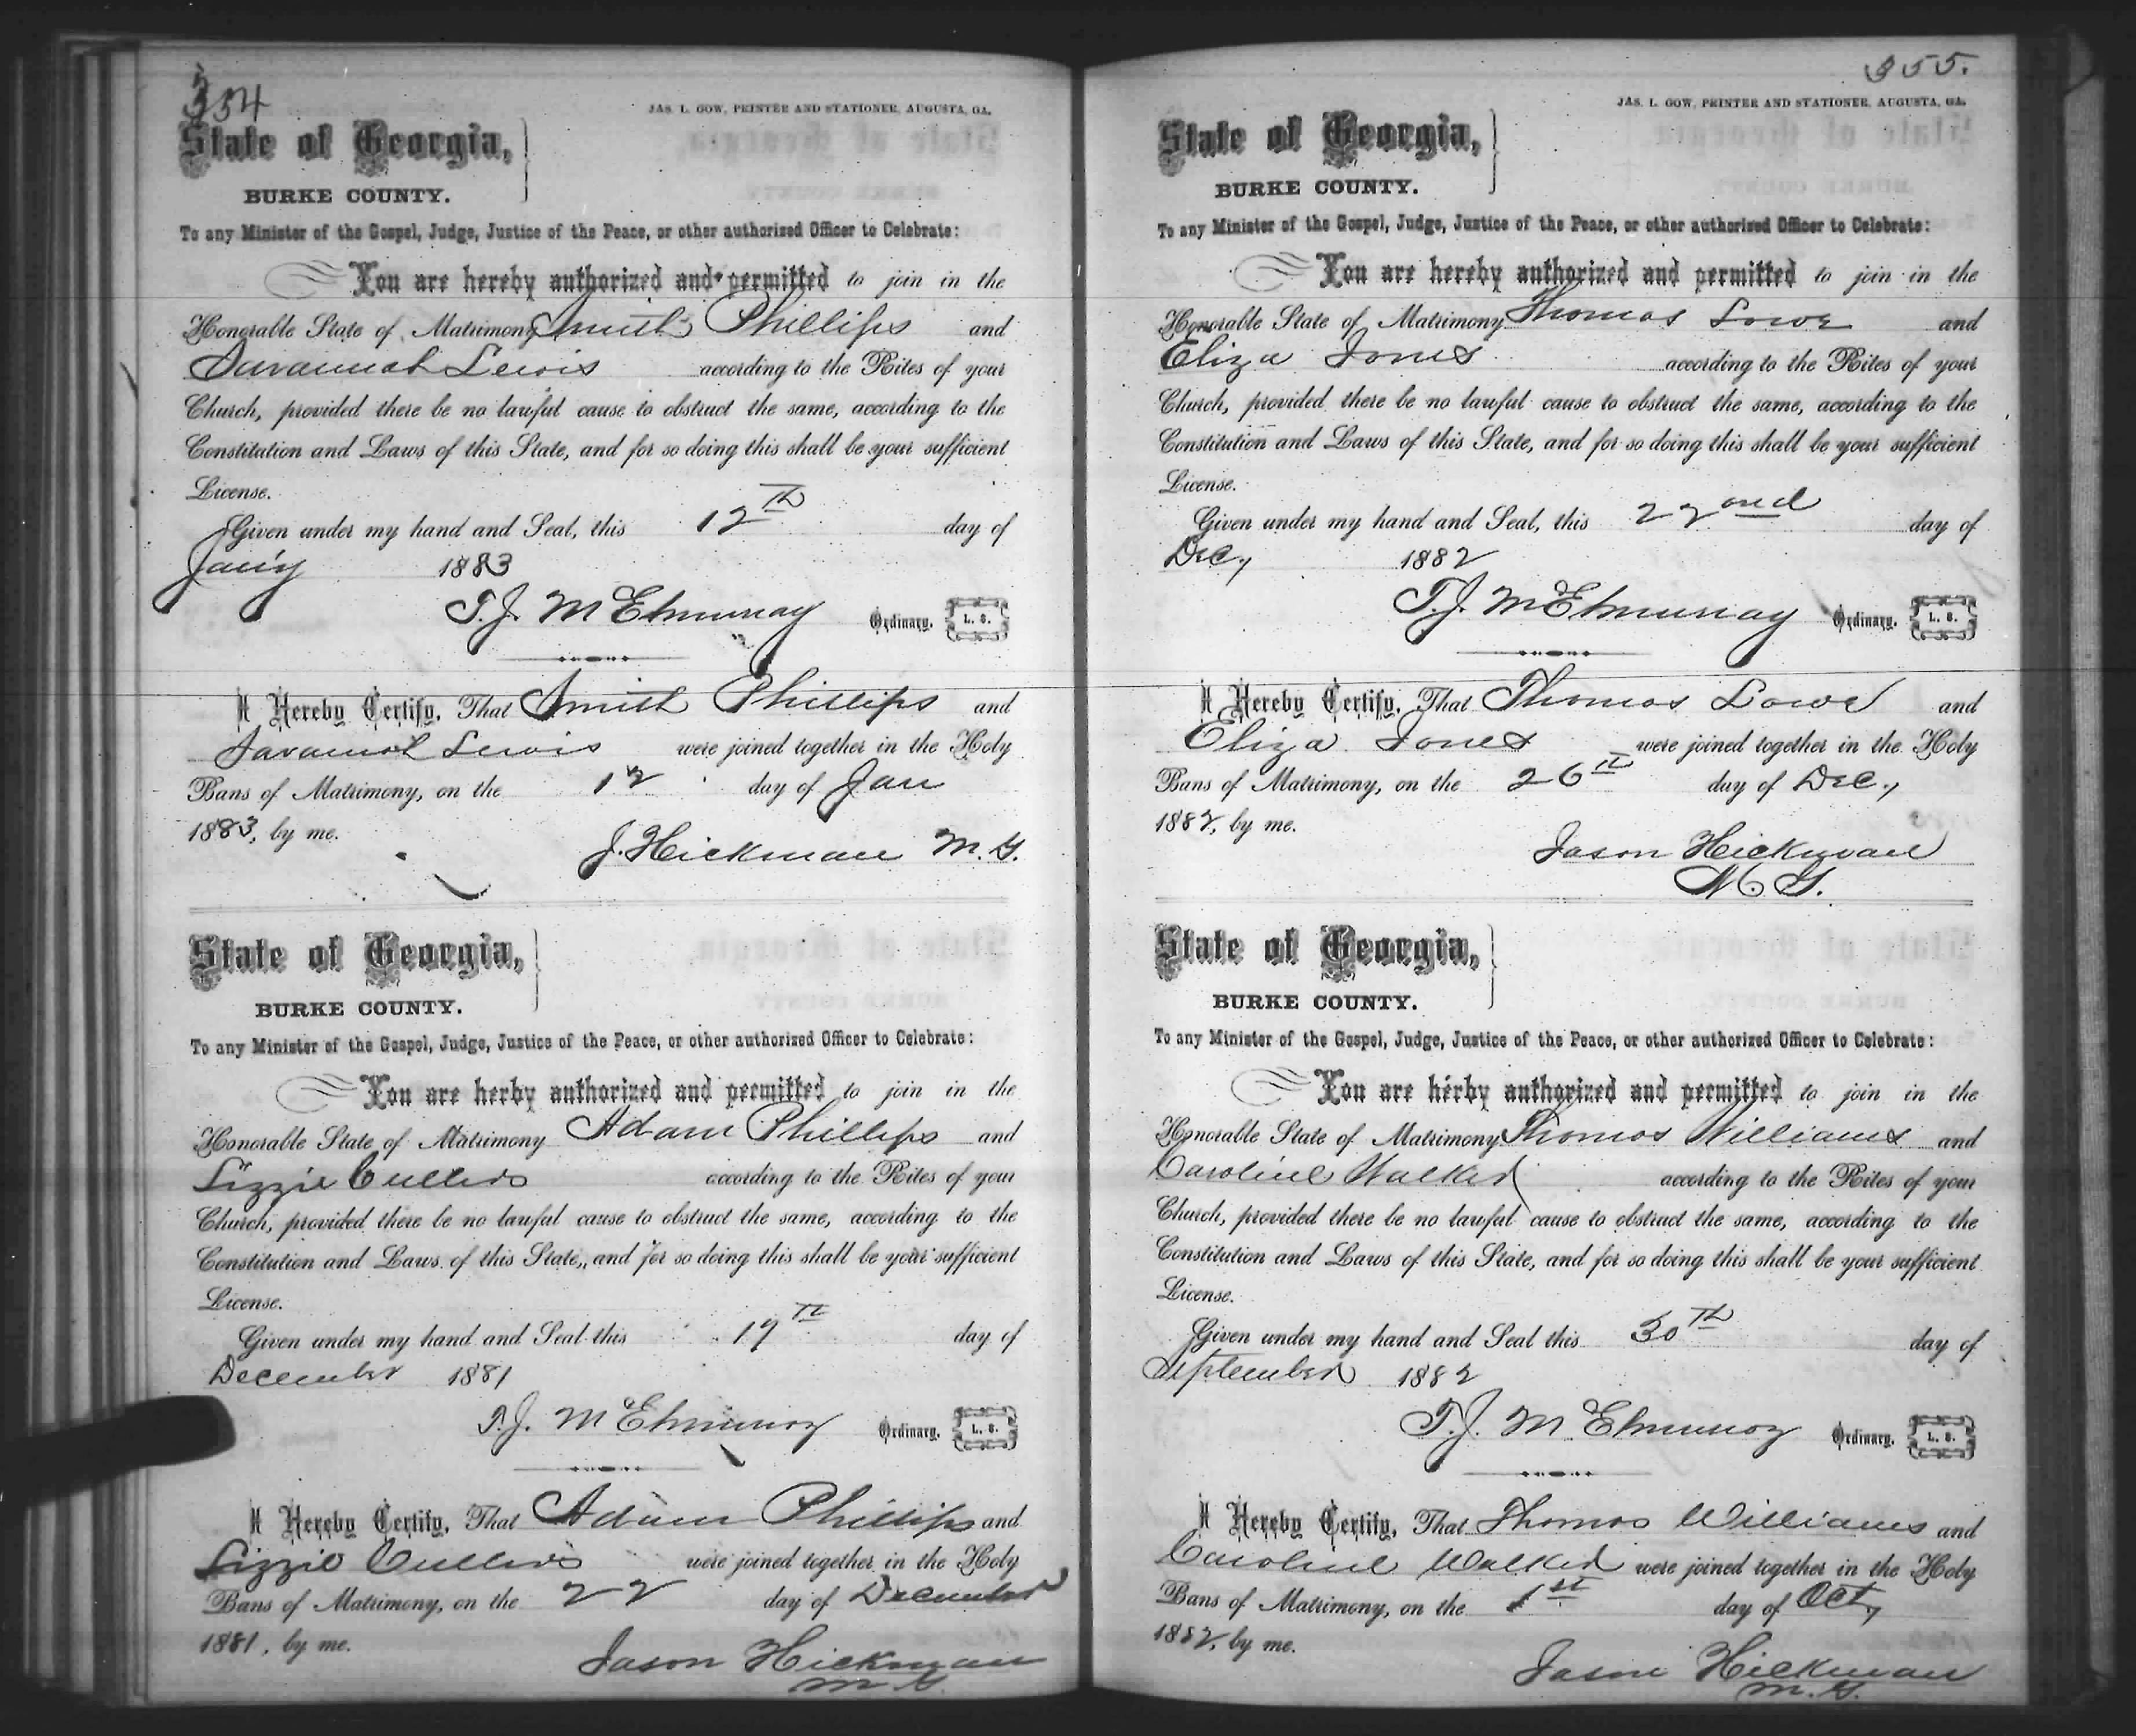 354
JAS. L. GOW, PRINTER AND STATIONER, AUGUSTA, GA.
State of Georgia,
BURKE COUNTY.
To any Minister of the Gospel, Judge, Justice of the Peace, or other authorized Officer to Celebrate:
You are hereby authorized and permitted to join in the
Honorable State of Matrimony Smith Phillips and
Savannah Lewis according to the Rites of your
Church, provided there be no lawful cause to obstruct the same, according to the
Constitution and Laws of this State, and for so doing this shall be your sufficient
License.
Given under my hand and Seal, this 12th day of
Jany 1883
T. J. McElmurray Ordinary. L. S.
I Hereby Certify, That Smith Phillips and
Savannah Lewis were joined together in the Holy
Bans of Matrimony, on the 12 day of Jan
1883, by me.
J. Hickman M. G.
State of Georgia,
BURKE COUNTY.
To any Minister of the Gospel, Judge, Justice of the Peace, or other authorized Officer to Celebrate:
You are herby authorized and permitted to join in the
Honorable State of Matrimony Adam Phillips and
Lizzie Cullers according to the Rites of your
Church, provided there be no lawful cause to obstruct the same, according to the
Constitution and Laws of this State, and for so doing this shall be your sufficient
License.
Given under my hand and Seal this 19th day of
December 1881
T. J. McElmurray Ordinary. L. S.
I Hereby Certify, That Adam Phillips and
Lizzie Cullers were joined together in the Holy
Bans of Matrimony, on the 22 day of December
1881, by me.
Jason Hickman
M. G.
355.
JAS. L. GOW, PRINTER AND STATIONER, AUGUSTA, GA.
State of Georgia,
BURKE COUNTY.
To any Minister of the Gospel, Judge, Justice of the Peace, or other authorized Officer to Celebrate:
You are hereby authorized and permitted to join in the
Honorable State of Matrimony Thomas Lowe and
Eliza Jones according to the Rites of your
Church, provided there be no lawful cause to obstruct the same, according to the
Constitution and Laws of this State, and for so doing this shall be your sufficient
License.
Given under my hand and Seal, this 22ond day of
Dec, 1882
T. J. McElmurray Ordinary. L. S.
I Hereby Certify, That Thomas Lowe and
Eliza Jones were joined together in the Holy
Bans of Matrimony, on the 26th day of Dec.,
1882, by me.
Jason Hickman
M. G.
State of Georgia,
BURKE COUNTY.
To any Minister of the Gospel, Judge, Justice of the Peace, or other authorized Officer to Celebrate:
You are herby authorized and permitted to join in the
Honorable State of Matrimony Thomas Williams and
Caroline Walker according to the Rites of your
Church, provided there be no lawful cause to obstruct the same, according to the
Constitution and Laws of this State, and for so doing this shall be your sufficient
License.
Given under my hand and Seal this 30th day of
September 1882
T. J. McElmurray Ordinary. L. S.
I Hereby Certify, That Thomas Williams and
Caroline Walker were joined together in the Holy
Bans of Matrimony, on the 1st day of Oct,
1882, by me.
Jason Hickman
M. G.